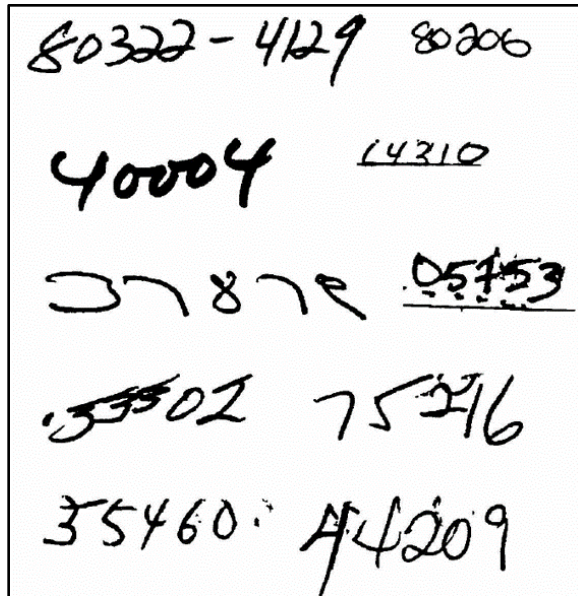 80322-4129 80206
40004 14310
37878 05453
35502 75216
35460 44209